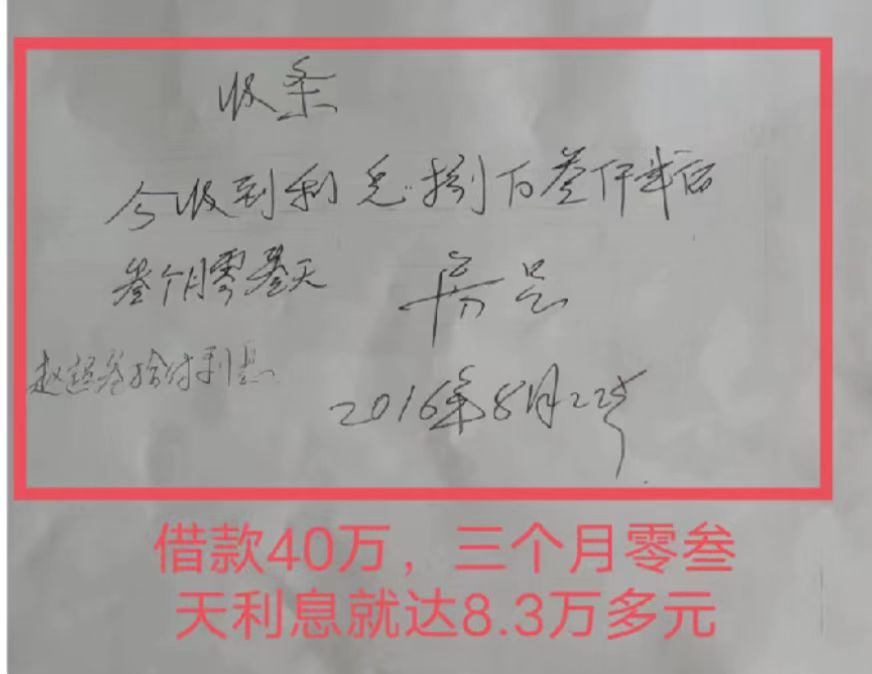 收条
今收到利息捌万叁仟贰佰
叁个月零叁天
2016年8月22号
借款40万，三个月零叁
天利息就达8.3万多元